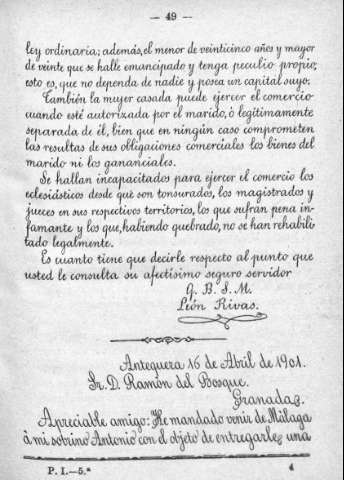 — 49 —
ley ordinaria; además, el menor de veinticinco años y mayor
de veinte que se halle emancipado y tenga peculio propio;
esto es, que no dependa de nadie y posea un capital suyo.
También la mujer casada puede ejercer el comercio
cuando esté autorizada por el marido, ó legítimamente
separada de él, bien que en ningún caso comprometen
las resultas de sus obligaciones comerciales los bienes del
marido ni los gananciales.
Se hallan incapacitados para ejercer el comercio los
eclesiásticos desde que son tonsurados, los magistrados y
jueces en sus respectivos territorios, los que sufran pena in-
famante y los que, habiendo quebrado, no se han rehabili
tado legalmente.
Es cuanto tiene que decirle respecto al punto que
usted le consulta su afectísimo seguro servidor
Q. B. S. M.
León Rivas.
Antequera 16 de Abril de 1901.
Sr. D. Ramón del Bosque.
Granada.
Apreciable amigo: He mandado venir de Málaga
á mi sobrino Antonio con el objeto de entregarle una
P. I.—5.ª 4